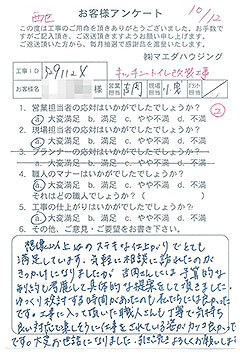 西 10/12
お客様アンケート
この度は工事のご用命を頂きありがとうございました。お手数で
すがご記入頂き、ご返送頂きますようお願い申し上げます。
ご返送頂いた方から、毎月抽選で感謝品を進呈いたします。
㈱マエダハウジング
工事ID キッチン・トイレ改装工事
お客様名 営業担当 吉岡 現場担当 プラン担当
1. 営業担当者の応対はいかがでしたでしょうか?
a. 大変満足 b. 満足 c. やや不満 d. 不満
2. 現場担当者の応対はいかがでしたでしょうか?
a. 大変満足 b. 満足 c. やや不満 d. 不満
3. プランナーの応対はいかがでしたでしょうか?
a. 大変満足 b. 満足 c. やや不満 d. 不満
4. 職人のマナーはいかがでしたでしょうか?
a. 大変満足 b. 満足 c. やや不満 d. 不満
それはどの職人でしょうか?( )
5. 工事の仕上がりはいかがでしたでしょうか?
a. 大変満足 b. 満足 c. やや不満 d. 不満
6. その他、ご意見・ご要望をお書き下さい。
想像以上のステキな仕上がりでとても
満足しています。気軽に相談に訪れたのが
きっかけになりましたが吉岡さんには予算的な
ことも考慮して具体的な提案をして頂きました。
ゆっくり検討する時間があったのも私たちには良かった
です。工事に入って頂いた職人さんも丁寧で気持ち
良い対応で楽しそうに仕事をされている姿がカッコ良かった
です。大変お世話になりました。